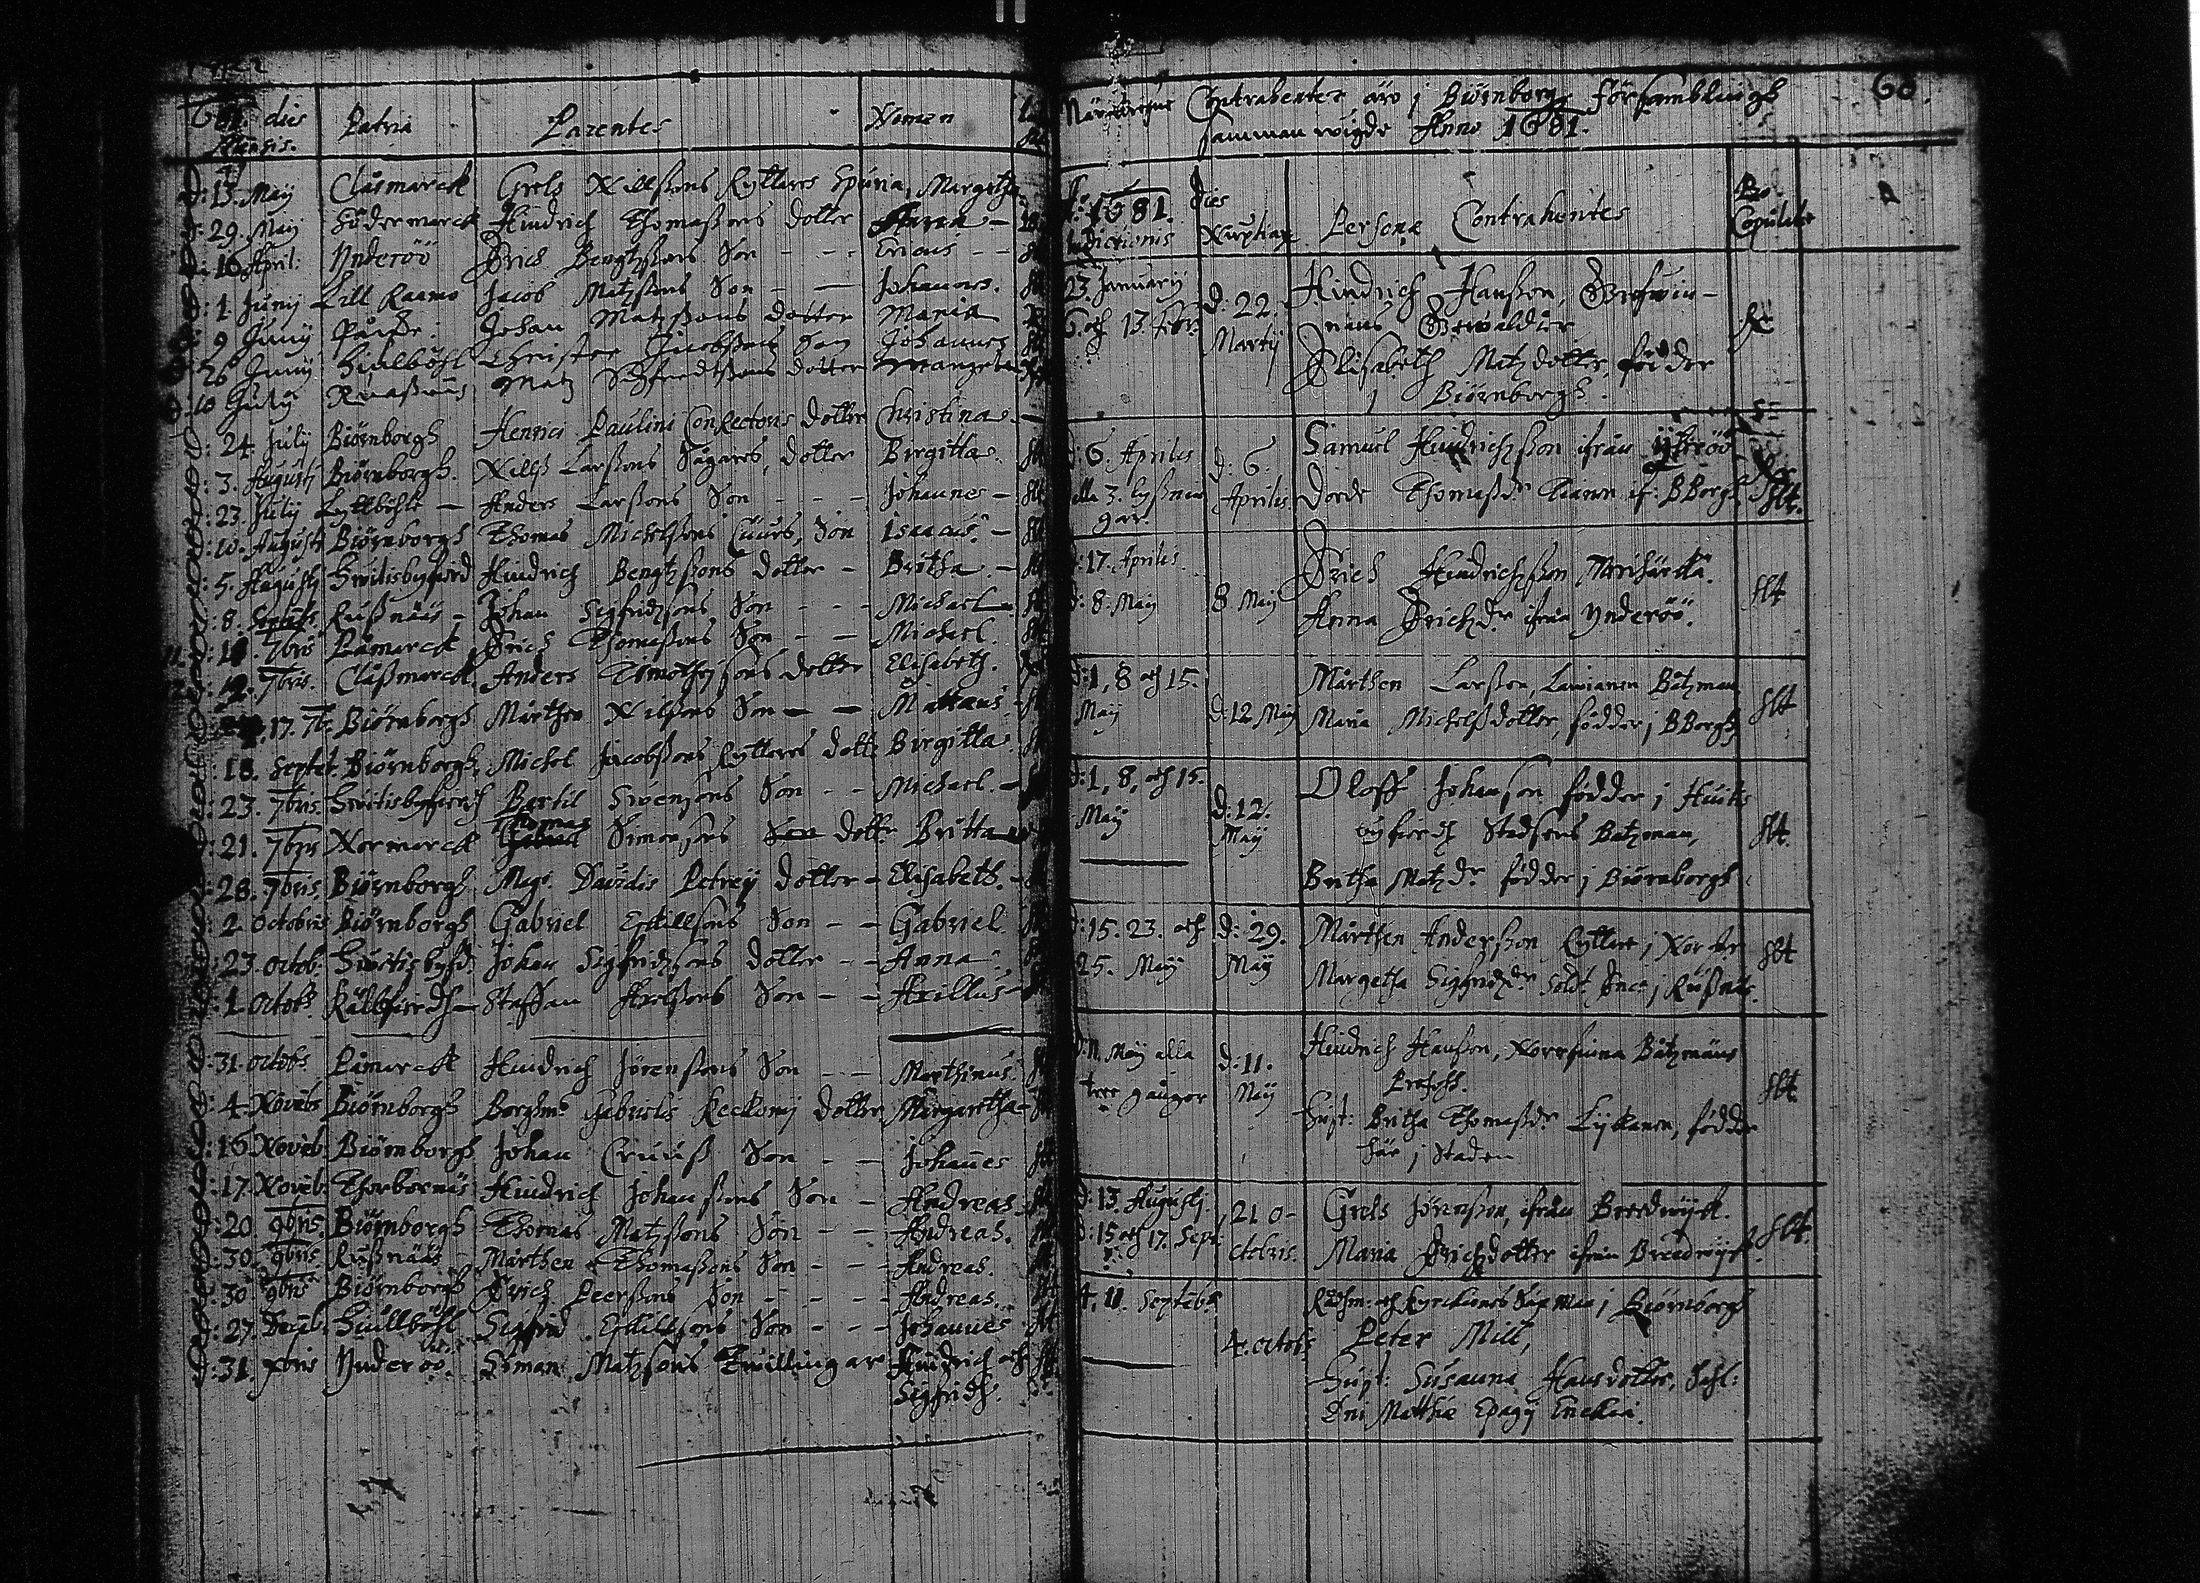 1681. dies Mensis. Patria Parentes Nomen
d: 13. Maij Clåsmarck Grels Nillssons Ryttares Spuria Margetha
d: 29. Maij Södermarck Hindrich Thomassons dotter Maria –
d: 16 April: Ynderöö Erich Bengtssons Son - - - Ericus - -
d: 1. Junij Lill Raamo Jacob Matzssons Son - — Johannes.
d: 9 Junij Johan Matzssons dotter Maria
d: 26 Junij Christer Jacobssons Son Johannes
d. 10 Julij Matz Sigfredssons dotter Margeta
d: 24. Julij Biörnborgh Henrici Paulini ConRectoris dotter Christina
d: 3. Augusti Biörnborgh. Nillss Larssons Sågares, dotter Birgitta
d: 23. Julij Lyttböhle — Anders Larssons Son - - - Johannes –
d: 10. Augusti Biörnborgh Thomas Michelssons Cuurs, Son Isaacus. –
d: 5. Augustj Hwitisbyfierd Hindrich Bengtzssons dotter - Britha –
d: 8. Septebr. Russnääs – Johan Sigfridzsons Son - - - Michael
11. 7bris Påmarck Erich Thomassons Son - — Michael
12. 7bris. Clåssmarck Anders Timothejsons dotter Elisabeth.
17. 7br. Biörnborgh Mårthen Nilssons Son — — Mattæus
d: 18. Septet. Biörnborgh Michel Jacobssons Ryttares dott. Birgitta
d: 23. 7bris. Hwitisbyfierd Bertil Swensons Son - - Michael. –
d: 21. 7bris Norrmarck Thomas Simonsons dott. Britta
d: 28. 7bris. Biörnborgh Mag. Davidis Petreij dotter – Elisabeth. –
d: 2. Octobris Biörnborgh Gabriel Eskillsons Son - - Gabriel.
d: 23. octob. Hwitisbyfd. Johan Sigfridzsons dotter - - Anna
d: 1. Octob. Kållfierdh — Staffan Axelssons Son - - Axillus
d: 31. octobs Påmarck Hindrich Jörenssons Son - - Marthinus.
d: 4. Novebr Biörnborgh Borghms Gabrielis Keckonij dotter Margaretha
d: 16 Noveb Biörnborgh Johan Cruuss Son - - Johannes
d: 17. Noveb: Thorbornäs Hindrich Johanssons Son - Andreas.
d: 20 9bris. Biörnborgh Thomas Matzssons Son - - Andreas.
d: 30. 9bris Russnääs Mårthen Thomassons Son - - - Andreas.
d: 30 9bris Biörnborgh Erich Peerssons Son - - - - Andreas.
d: 27. Deceb. Hiullböhl Sigfrid Eskillsons Son - - - Johannes
d: 31. xbris Ynderöö. Siman Matzsons Twillingar Hindrich och
Sigfridh.
68
Contrahenter äro j Biörnborgz församblingh
samman wigde Anno 1681.
Ao 1681. Dies Nuptiar. Personæ Contrahentes Copulat.
23. Januarij d: 22. Martij Hindrich Hansson,
6. och 13. Febr.
Elisabeth Matz dotter, född
j Biörnborgh.
d: 6. Aprilis d: 6. Aprilis Samuel Hindrichsson ifrån
alla 3. lyssningar. Dorde Thomassdr. if: BBorgh.
d: 17. Aprilis. Erich Hindrichsson
d: 8. Maij 8 Maij Anna Erichzdr. ifrån Ynderöö.
d: 1, 8 och 15. Maij d: 12 Maij Mårthen Larsson, Båtzman
Maria Michelssdotter, född j BBorgh
d: 1, 8, och 15. Maij d: 12. Maij Oloff Johanson född j Hwitis
byfierdh Stadsens Båtzman,
Britha Matzdr. född j Biörnborgh
d: 15. 23. och 25. Maij d: 29. Maij Mårthen Andersson Ryttare j
Margetha Sigfridzdr. j Russnäs.
d: 11. Maij alla tree gånger d: 11. Maij Hindrich Hansson, Båtzmäns
Profoss.
Hust: Britha Thomassdr. född
här j Staden
d: 13. Augustj. 21 octobris. Grels Jörensson, ifrån Bredwijk.
d: 15 och 17. Sept. Maria Erichzdotter ifrån Bredwijk
4. 11. Septebr. 4. octob. Rådhm: och j Biörnborgh
Peter Mill,
Hust: Susanna Hansdotter, Sahl:
Dni Matthiæ